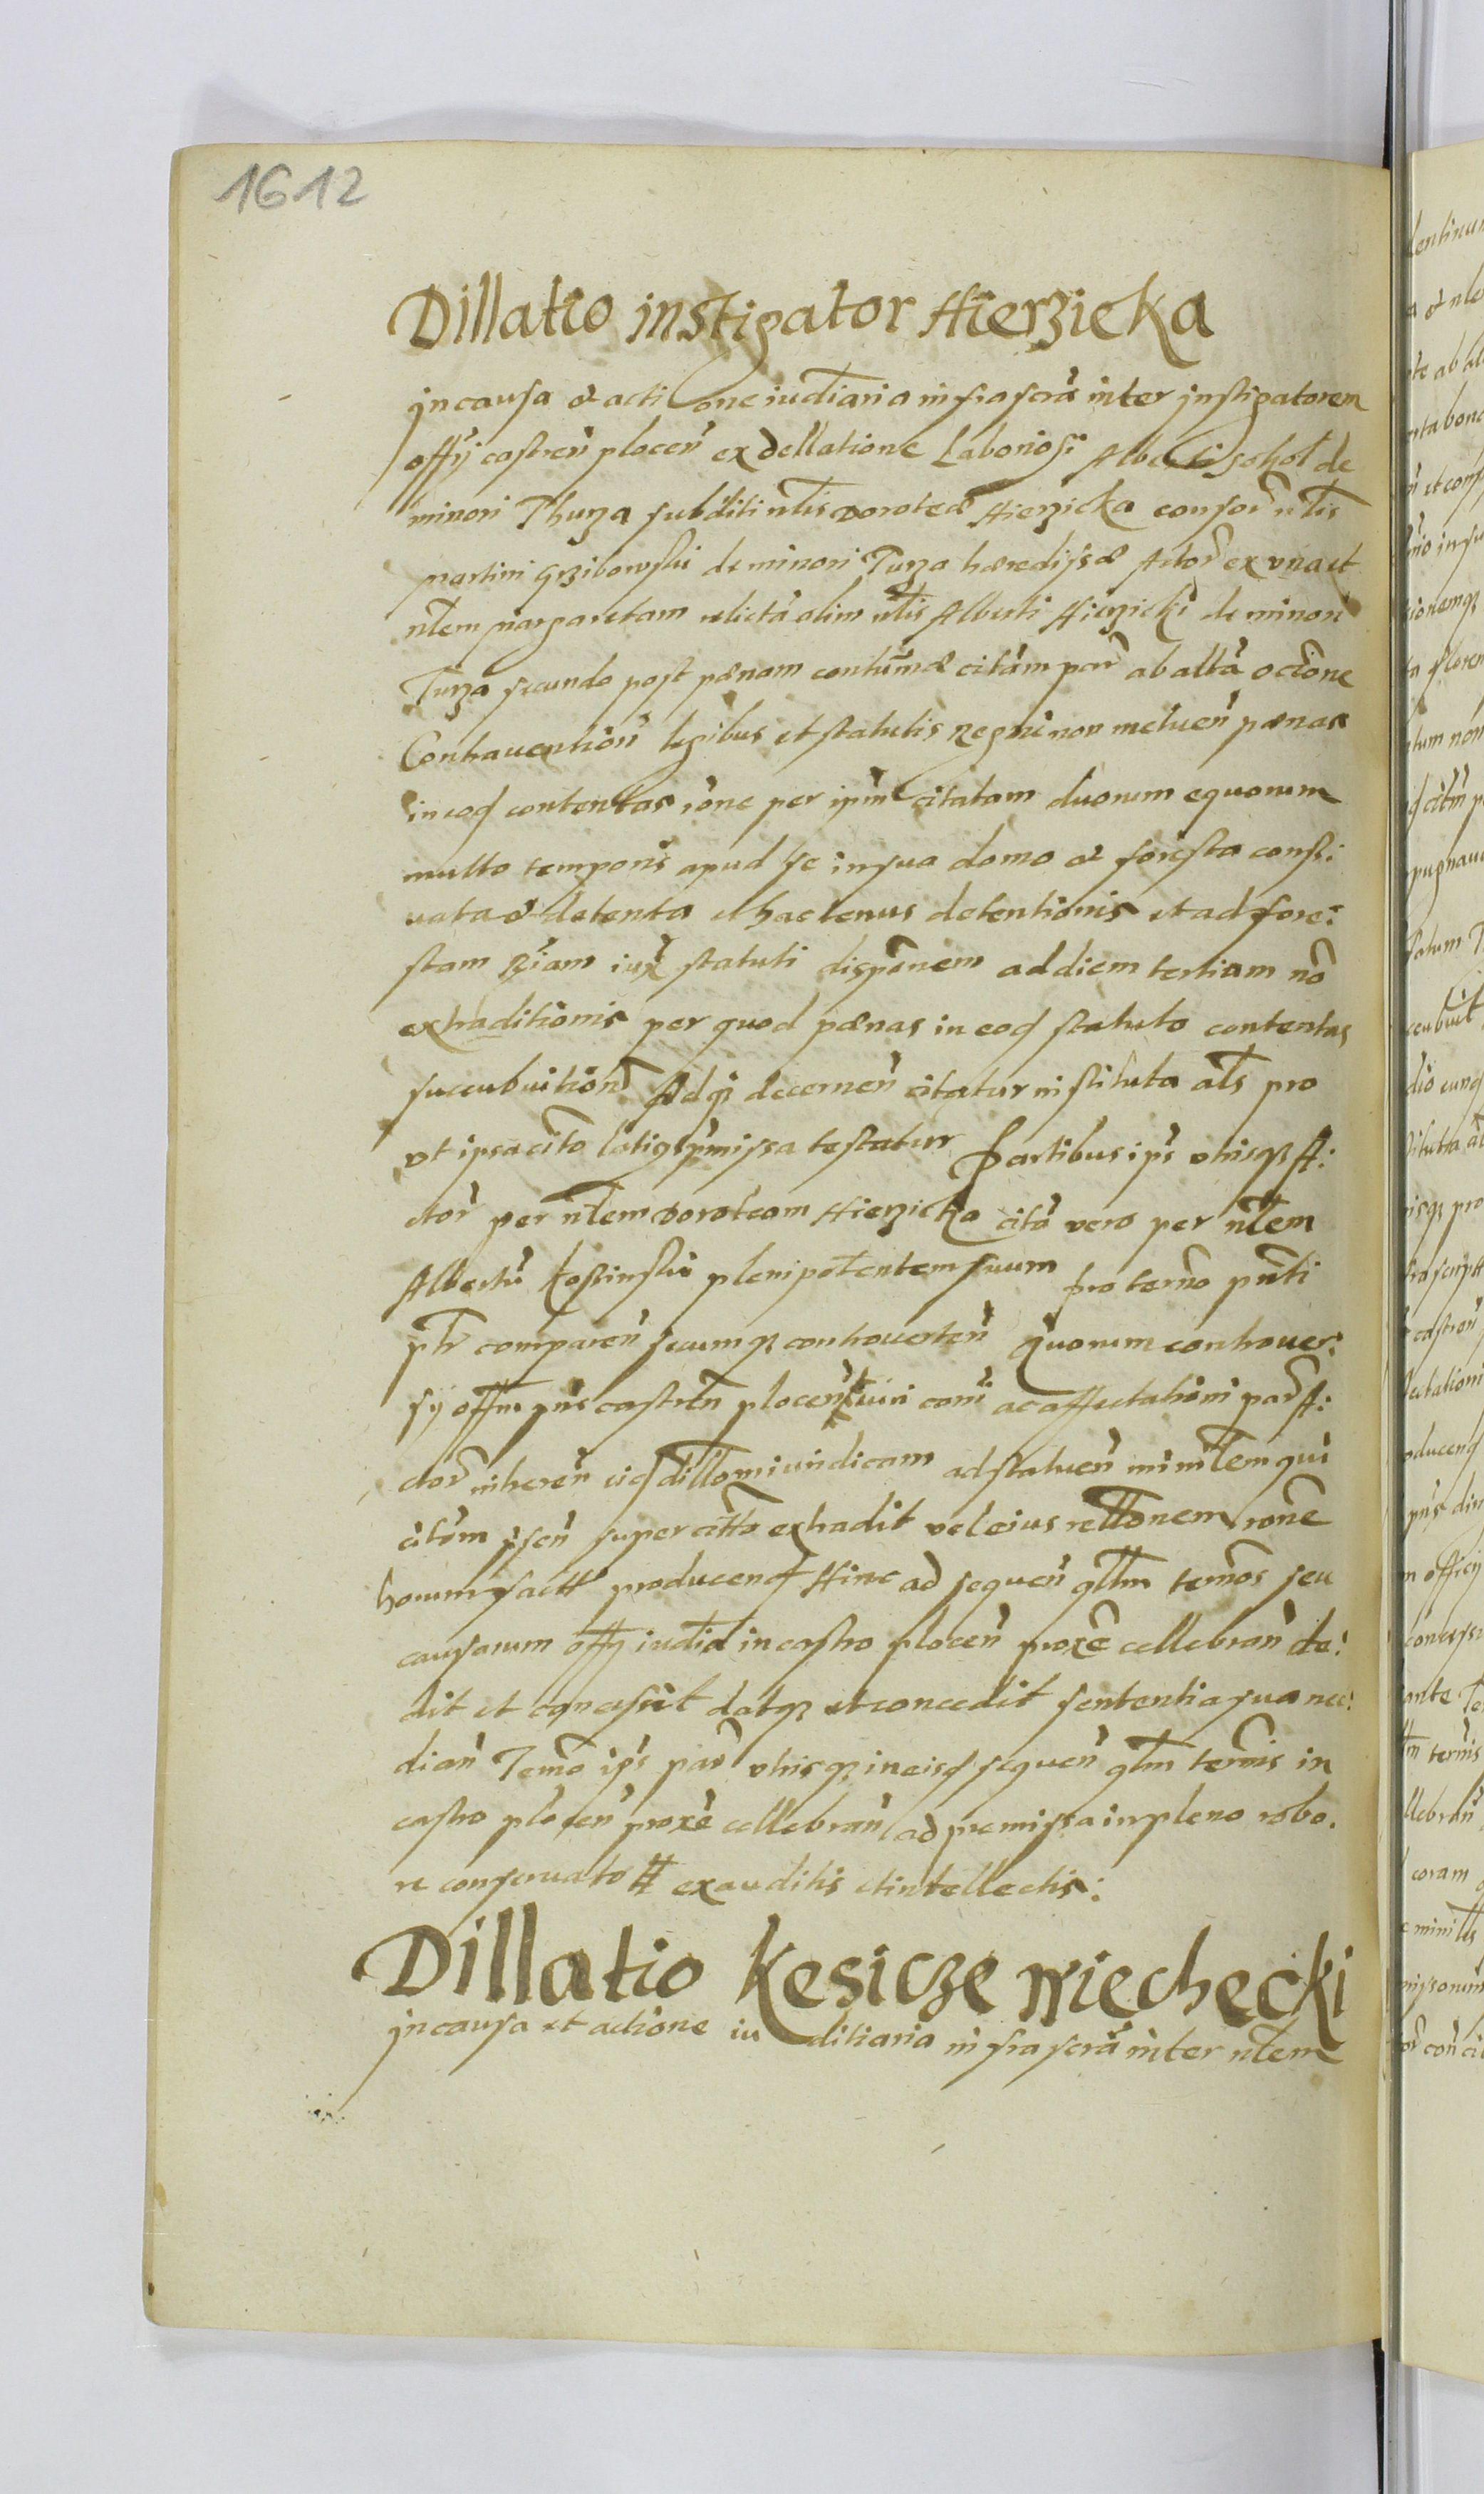 1612
Dillatio instigator Hierzicka
Jn causa & actione iud̃iaria infrascrã inter Jnstigatorem
offÿ castreñ ploceñ ex dellatione Laboriosi Alberti sokol de
minori Thurza subditi nłis Doroteæ Hierzicka consor̃ nłis
Martini Grzibowski de minori Turza hæredissæ Actor̃ ex vna et
nłem Margaretam relictã olim nłis Alberti Hierzicki de minori
Turza secundo post pænam contum̃æ citãm par̃ ab altã occ̃one
Contrauentioñ legibus et statutis Regni non metueñ pænas
in eoq contentas rõne per ipm̃ citatam duorum equorum
multo temporis apud se in sua domo & foresta conser:
uata & detenta et hactenus detentionis et ad fore:
stam Rĩam iux̃ statuti dispõnem ad diem tertiam nõ
extraditionis per quod pænas in eoq statuto contentas
succubuitioñ Adq deceneñ citatur instituta ałs pro
vt ipsa citõ latiq p̃missa testatur Partibus ip̃s vtrisq A:
ctor̃ per nłem Doroteam Hierzicka citã vero per nłem
Albertũ Kossinski plenipotentem suum pro term̃o pñti
pł̃r compareñ secumq controuerteñ Quorum controuer:
sÿ offm̃ pñs castreñ ploceñ iuri com̃i ac affectationi par̃ A:
ctor̃ inhereñ eisq dillõm iuridicam ad statueñ minrłem qui
citõm p̃señ super citto extradit vel eius rełłonem rõne
horum factł produceñd Hinc ad sequeñ qłłm term̃os seu
causarum offÿ iud̃id in castro ploceñ prox̃e cellebrañ de:
dit et concessit datq et concedit sententia sua me:
diañ Term̃o ip̃s par̃ vtrisq in eisq sequeñ qłm term̃is in
castro ploceñ prox̃e cellebrañ ad premissa in pleno robo:
re conseruato # exauditis et intellectis:
Dillatio Kesicze Miechecki
Jn causa et actione iuditiaria infrascrã inter nłem